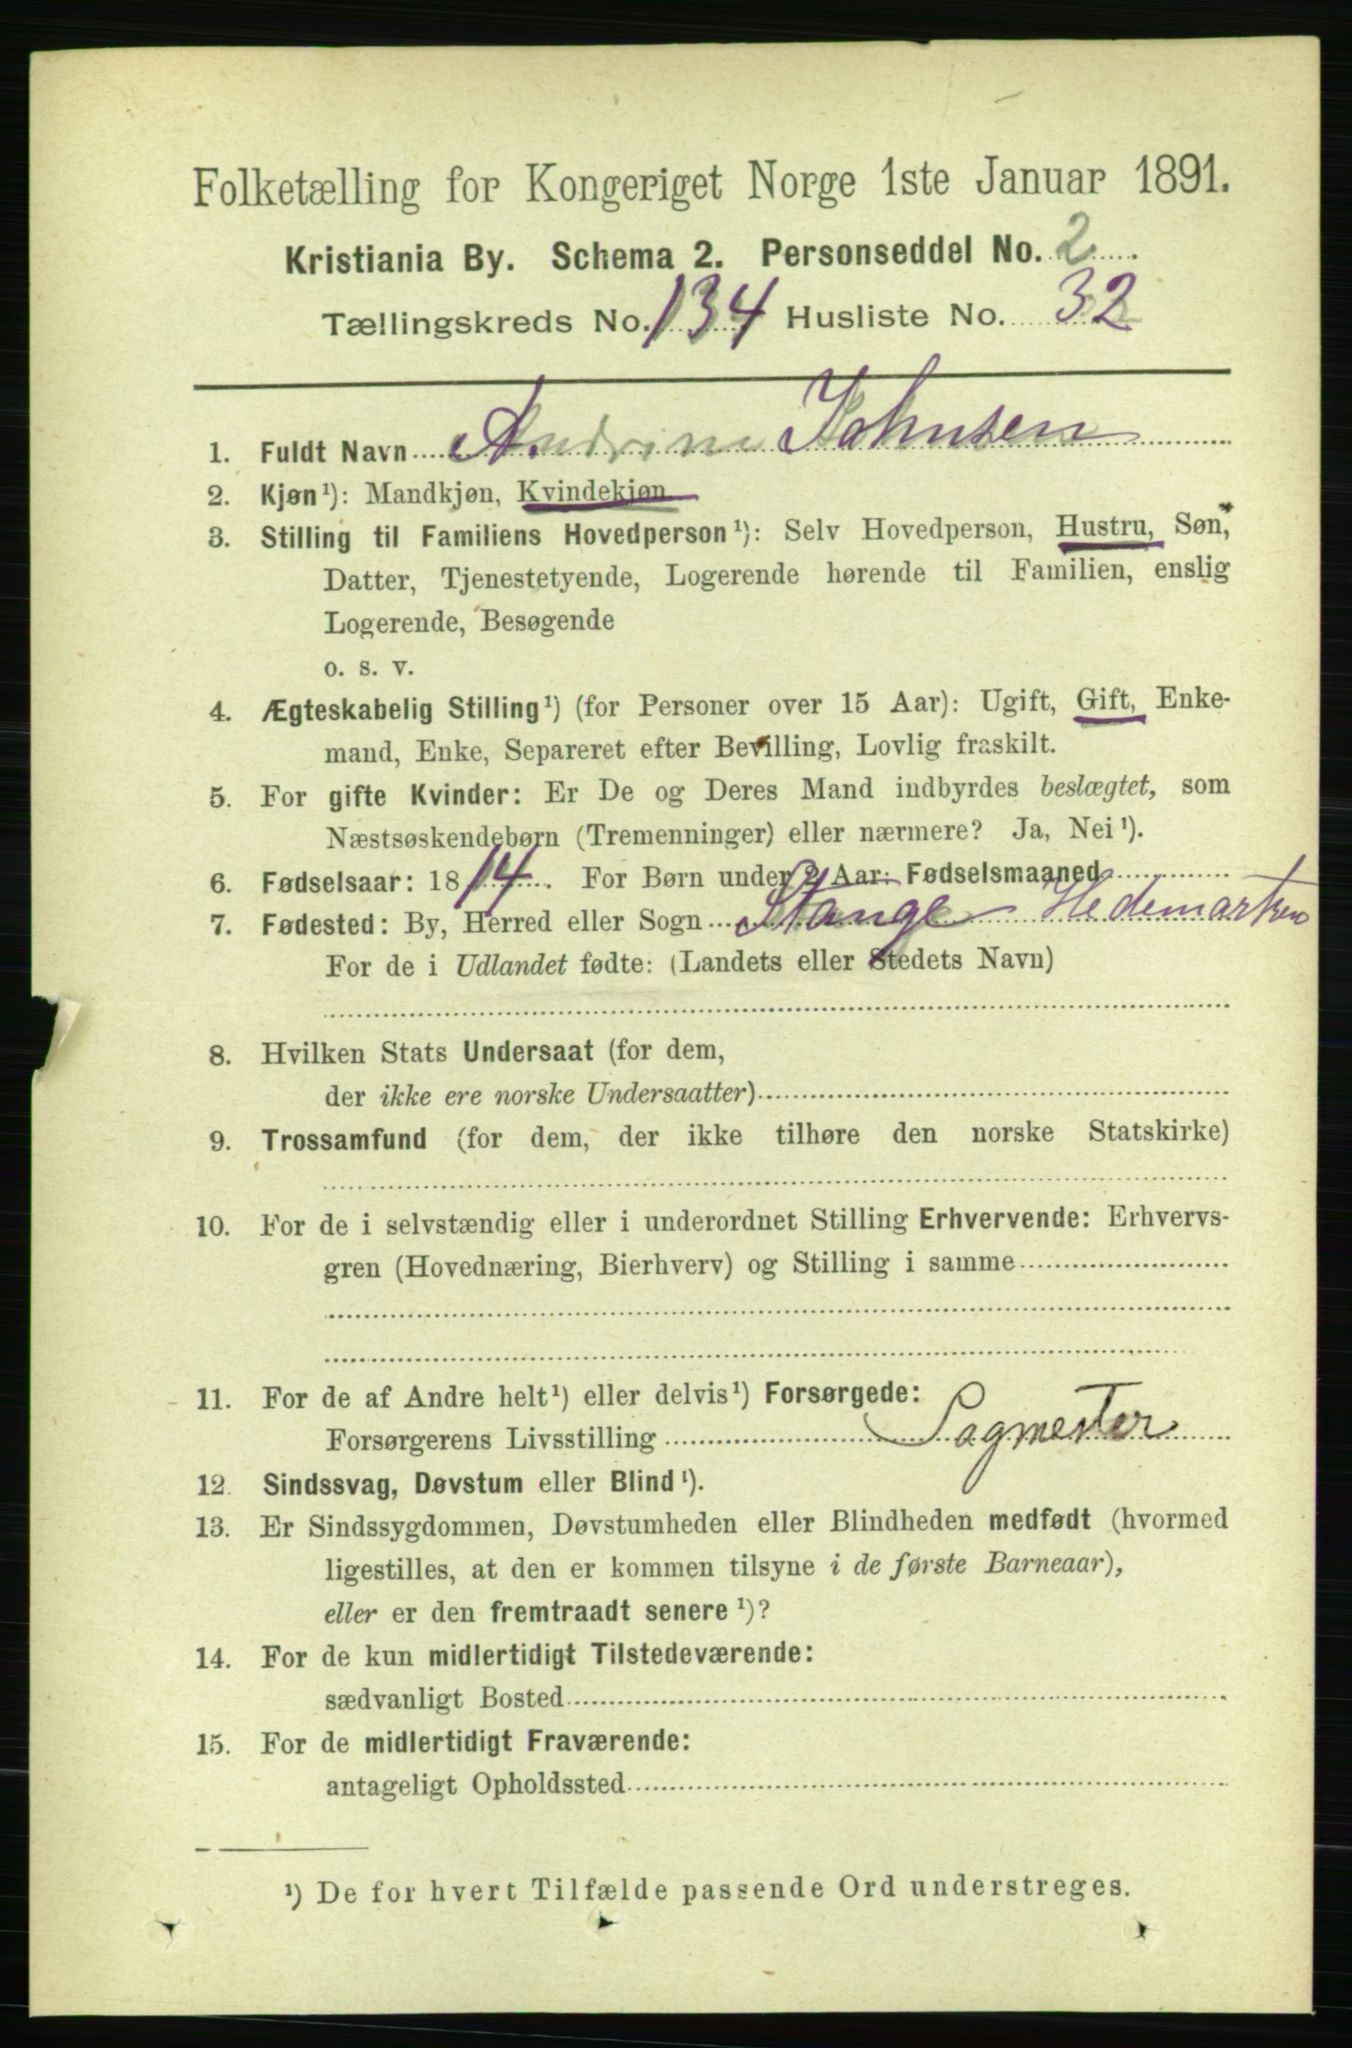 Folketælling for Kongeriget Norge 1ste Januar 1891.
Kristiania By. Schema 2. Personseddel No. 2
Tællingskreds No. 134 Husliste No. 32
1. Fuldt Navn Andrine Johnsen
2. Kjøn¹): Mandkjøn, Kvindekjøn
3. Stilling til Familiens Hovedperson¹): Selv Hovedperson, Hustru, Søn,
Datter, Tjenestetyende, Logerende hørende til Familien, enslig
Logerende, Besøgende
o. s. v.
4. Ægteskabelig Stilling¹) (for Personer over 15 Aar): Ugift, Gift, Enke-
mand, Enke, Separeret efter Bevilling, Lovlig fraskilt.
5. For gifte Kvinder: Er De og Deres Mand indbyrdes beslægtet, som
Næstsøskendebørn (Tremenninger) eller nærmere? Ja, Nei¹).
6. Fødselsaar: 1814. For Børn under 2 Aar: Fødselsmaaned
7. Fødested: By, Herred eller Sogn Stange Hedemarken
For de i Udlandet fødte: (Landets eller Stedets Navn)
8. Hvilken Stats Undersaat (for dem,
der ikke ere norske Undersaatter)
9. Trossamfund (for dem, der ikke tilhøre den norske Statskirke)
10. For de i selvstændig eller i underordnet Stilling Erhvervende: Erhvervs-
gren (Hovednæring, Bierhverv) og Stilling i samme
11. For de af Andre helt¹) eller delvis¹) Forsørgede:
Forsørgerens Livsstilling Sagmester
12. Sindssvag, Døvstum eller Blind¹).
13. Er Sindssygdommen, Døvstumheden eller Blindheden medfødt (hvormed
ligestilles, at den er kommen tilsyne i de første Barneaar),
eller er den fremtraadt senere¹)?
14. For de kun midlertidigt Tilstedeværende:
sædvanligt Bosted
15. For de midlertidigt Fraværende:
antageligt Opholdssted
¹) De for hvert Tilfælde passende Ord understreges.